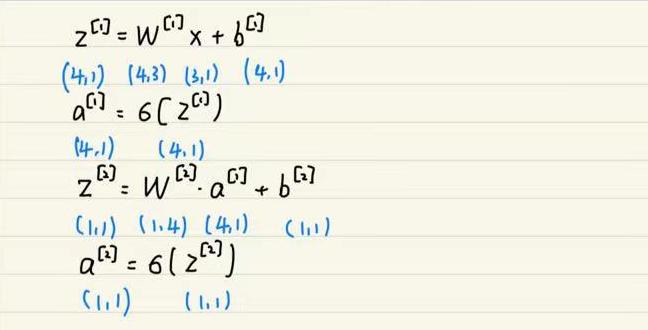 z^[1] = W^[1] x + b^[1]
(4,1) (4,3) (3,1) (4,1)
a^[1] = 6(z^[1])
(4,1) (4,1)
z^[2] = W^[2] · a^[1] + b^[2]
(1,1) (1,4) (4,1) (1,1)
a^[2] = 6(z^[2])
(1,1) (1,1)